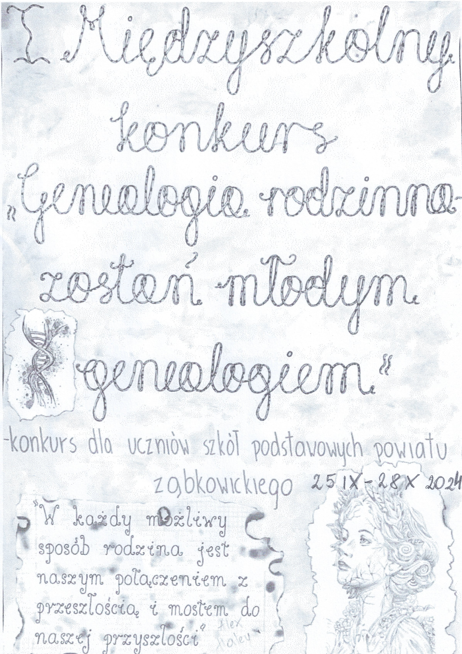 I Międzyszkolny
konkurs
„Genealogia rodzinna-
zostań młodym
genealogiem."
-konkurs dla uczniów szkół podstawowych powiatu
ząbkowickiego 25 IX - 28 X 2024
"W każdy możliwy
sposób rodzina jest
naszym połączeniem z
przeszłością i mostem do
naszej przyszłości"
Alex